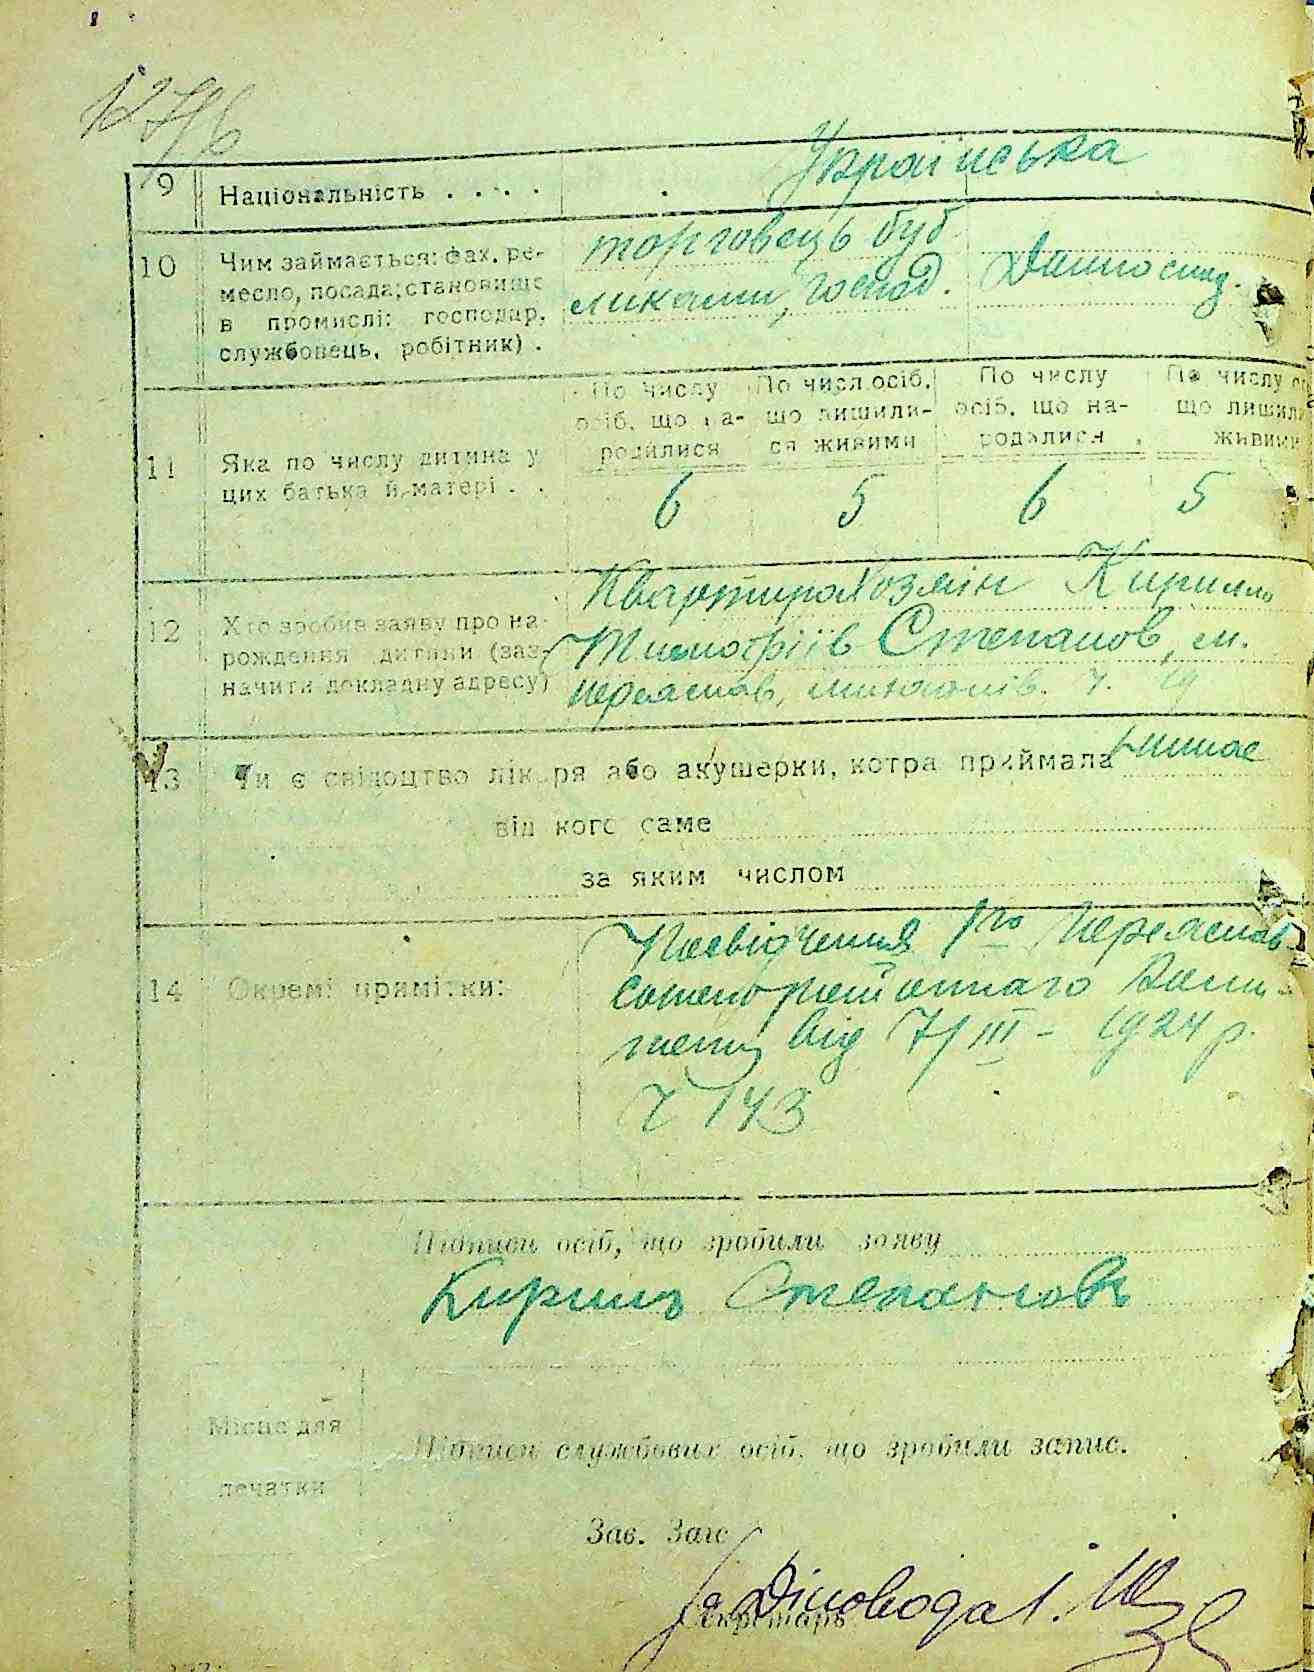 1276
9 Національність . . . . Українська
10 Чим займається: фах, ре-
месло, посада; становище
в промислі: господар,
службовець, робітник) .
торговець буб
ликами, господ.
Домо
11 Яка по числу дитина у
цих батька й матері . .
По числу осіб, що на-родилися
По числ. осіб, що лишили-ся живими
По числу осіб, що на-родилися
По числу що лишил живими
6 5 6 5
12 Хто зробив заяву про на-
рождення дитини (заз-
начити докладну адресу)
Квартирохозяїн Кирило
Тимофіїв Степанов, м.
Переяслав,
13 Чи є свідоцтво лікаря або акушерки, котра приймала немає
від кого саме
за яким числом
14 Окремі примітки:
Посвідчення 1го Переяслав
від 7/III – 1924 р.
Ч 143
Підписи осіб, що зробили заяву
Кирилъ Степановъ
Місце для
печатки
Підписи службових осіб, що зробили запис.
Зав. Загс
Секретарь
за Діловода